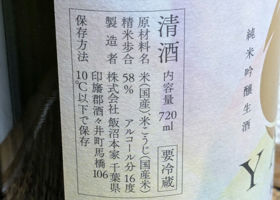 純米吟醸生酒
Y
清酒 内容量 720ml 要冷蔵
原材料名 米(国産)米こうじ(国産米)
精米歩合 58% アルコール分 16度
製造者 株式会社 飯沼本家 千葉県
印旛郡酒々井町馬橋106
保存方法 10℃以下で保存